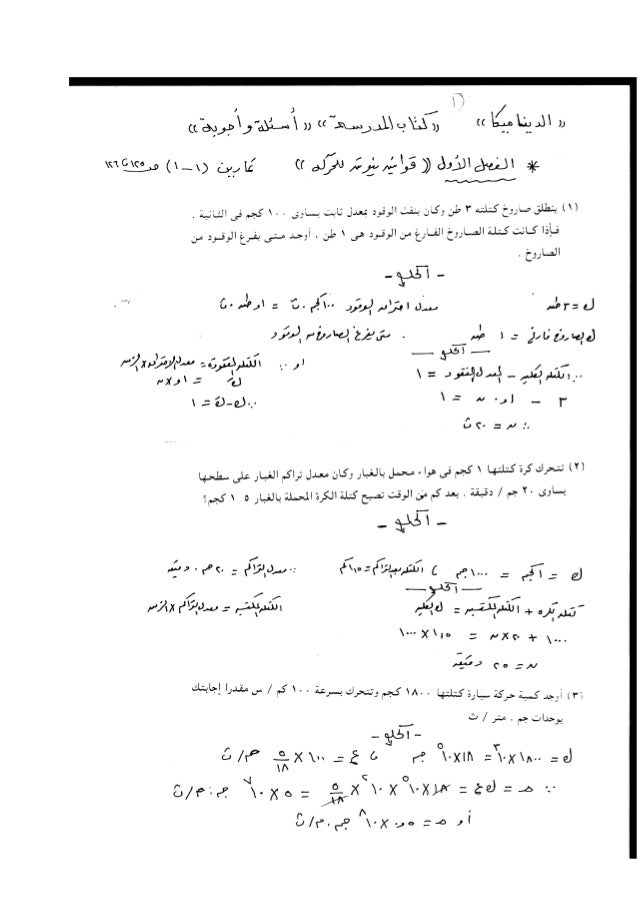 (١)
« الديناميكا » « كتاب المدرسة » « أسئلة وأجوبة »
* الفصل الأول (( قوانين نيوتن للحركة )) تمارين (١-١) ص ١٢٥، ١٢٦
(١) ينطلق صاروخ كتلته ٣ طن وكان ينفث الوقود بمعدل ثابت يساوى ١٠٠ كجم فى الثانية .
فإذا كانت كتلة الصاروخ الفارغ من الوقود هى ١ طن ، أوجد متى يفرغ الوقود من
الصاروخ .
- الحل -
ك = ٣ طن معدل احتراق الوقود ١٠٠ كجم . ث = ٠,١ طن . ث
ك الصاروخ فارغ = ١ طن . متى يفرغ الصاروخ من الوقود
- الحل -
∵ الكتلة الكلية - المعدل المفقود = ١ أو ∵ الكتلة المفقودة = معدل الاحتراق × الزمن
٣ - ٠,١ ن = ١
∴ ن = ٢٠ ث
(٢) تتحرك كرة كتلتها ١ كجم فى هواء محمل بالغبار وكان معدل تراكم الغبار على سطحها
يساوى ٢٠ جم / دقيقة . بعد كم من الوقت تصبح كتلة الكرة المحملة بالغبار ١٫٥ كجم؟
- الحل -
ك = ١ كجم = ١٠٠٠ جم ، الكتلة بعد التراكم = ١,٥ كجم ∵ معدل التراكم = ٢٠ جم . دقيقة
- الحل -
كتلة الكرة + الكتلة المكتسبة = ك الكلية الكتلة المكتسبة = معدل التراكم × الزمن
١٠٠٠ + ٢٠ × ن = ١,٥ × ١٠٠٠
ن = ٢٥ دقيقة
(٣) أوجد كمية حركة سيارة كتلتها ١٨٠٠ كجم وتتحرك بسرعة ١٠٠ كم / س مقدرا إجابتك
بوحدات جم . متر / ث
- الحل -
ك = ١٨٠٠ × ١٠^٣ = ١٨ × ١٠^٥ جم ، ع = ١٠٠ × ٥/١٨ م/ث
∵ م = ك ع = ١٨ × ١٠^٥ × ١٠^٢ × ٥/١٨ = ٥ × ١٠^٧ جم . م/ث
أو م = ٠,٥ × ١٠^٨ جم . م/ث